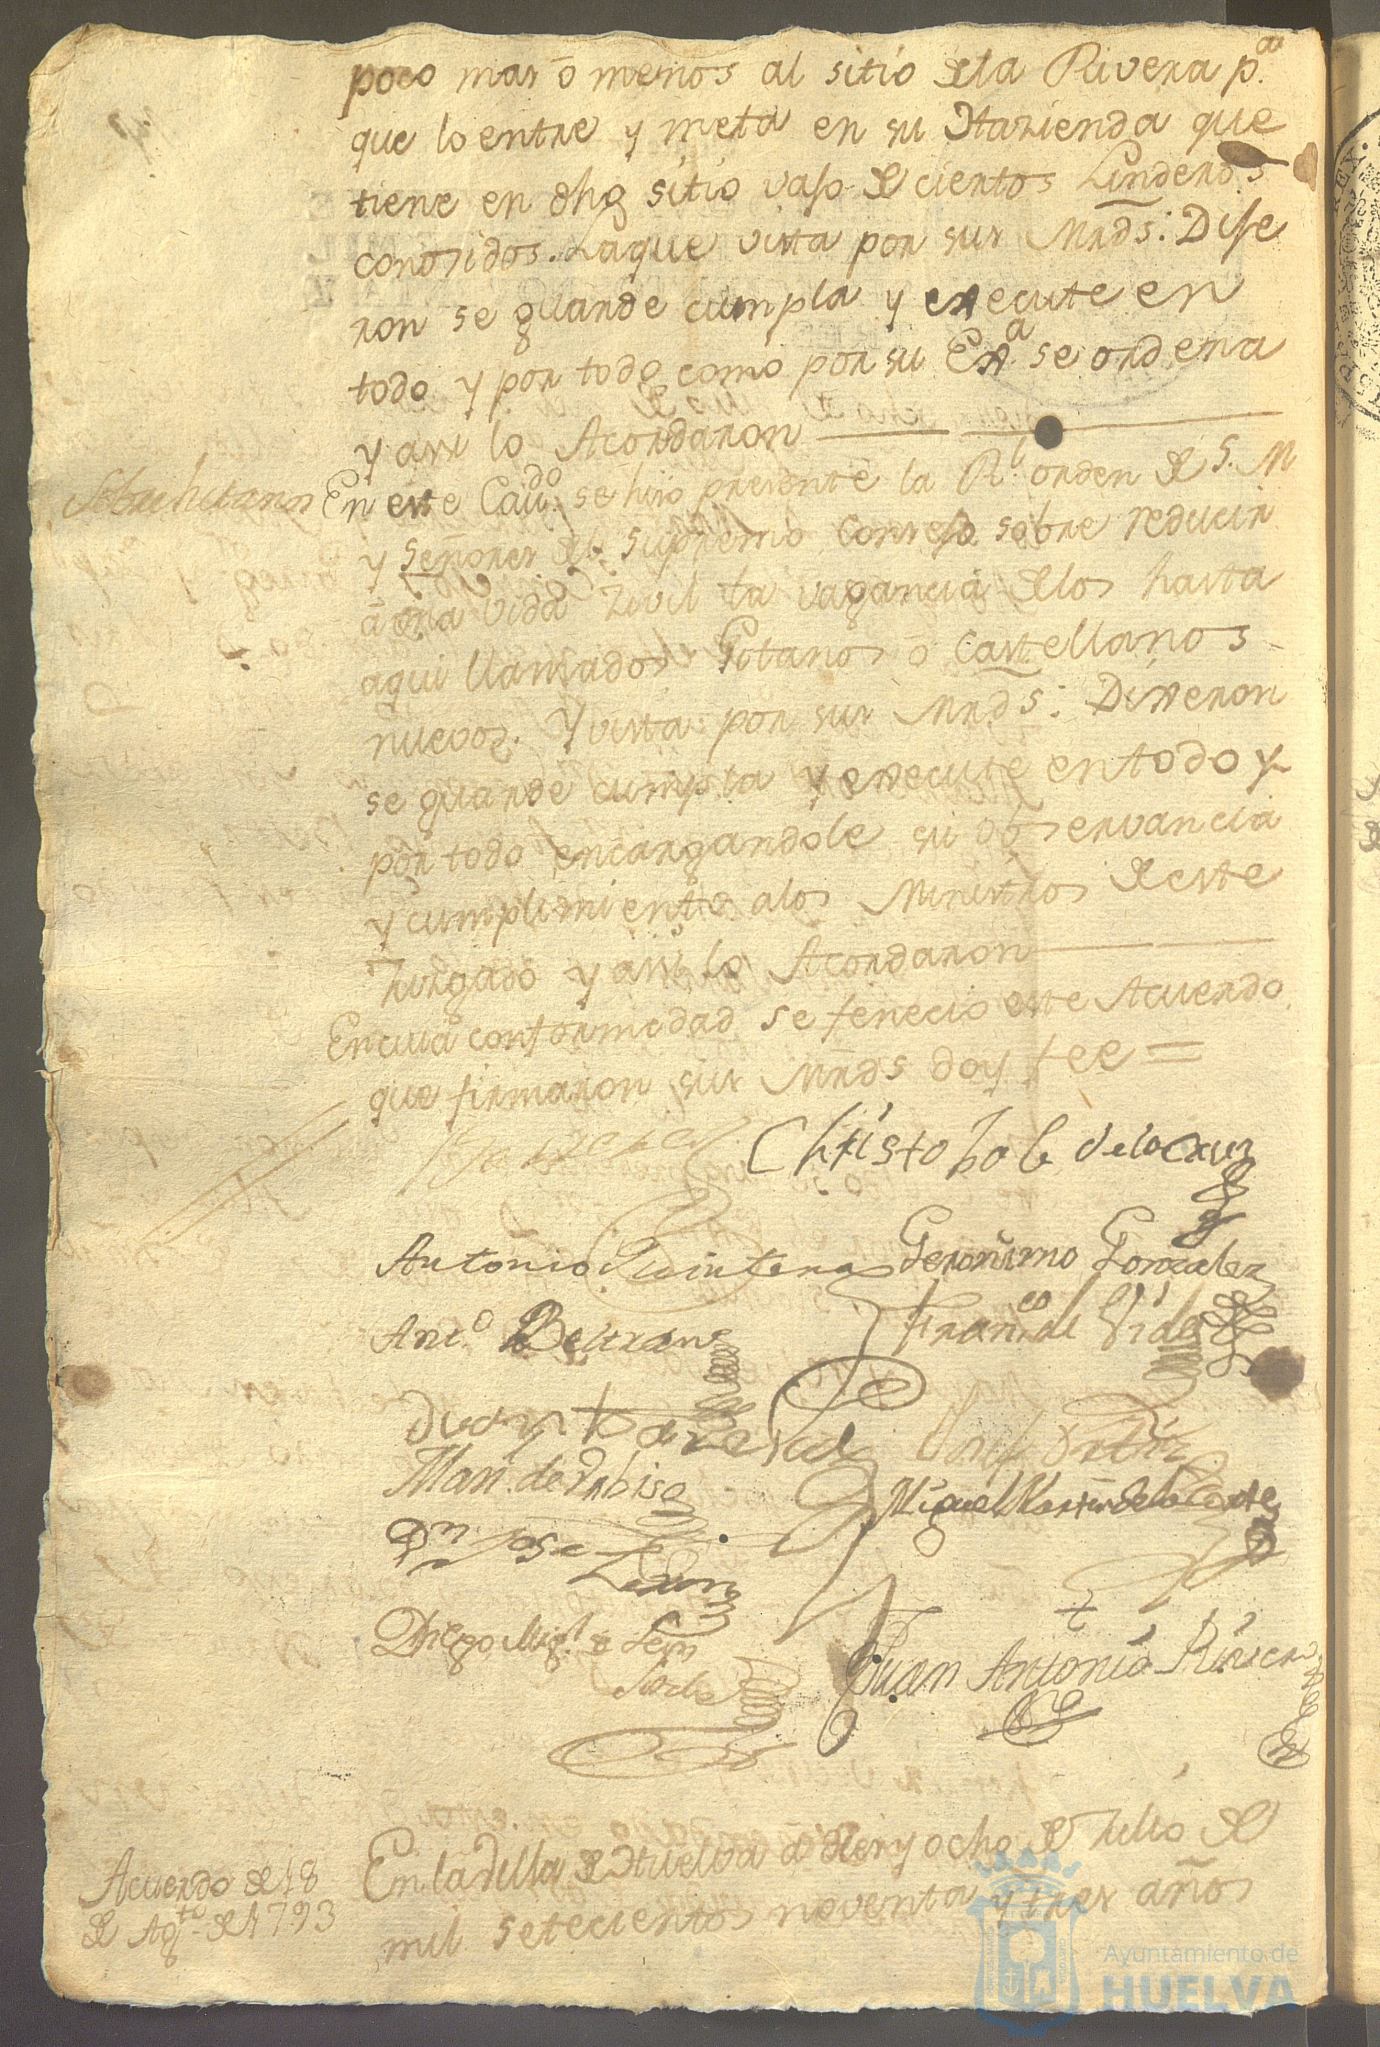 poco mas ô menos al sitio de la Rivera p.ª
que lo entre y meta en su Hazienda que
tiene en dho sitio vaso de ciertos Linderos
conosidos. La que vista por sus Mrds: Dije
ron se guarde cumpla y execute en
todo y por todo como por su Exª se ordena
y assi lo Acordaron
Sobre hitanos
En este Cavdo. se hizo presente la Rl. orden de S. M
y Señores del Supremo Consejo sobre reducir
â una vida zivil la vagancia de los hasta
aqui llamados Gitanos ô Castellanos
nuevos. Y vista por sus Mrds: Dixeron
se guarde cumpla y execute en todo y
por todo encargandole su observancia
y cumplimiento a los Ministros de este
Juzgado y assi lo Acordaron
En cuia conformidad se fenecio este Acuerdo
que firmaron sus Mrds doy fee =
Christobal de la Cruz
Antonio Quintero Geronimo Gonzalez
Ant.º Beltran Fran.co del Vide
Josef Ortiz
Man. de
Miguel Martin de la Corte
Dn Jose
Diego Mig.l
Juan Antonio Rivero
Acuerdo de 18
de Agto de 1793
En la Villa de Huelva a diez y ocho de Julio de
mil setecientos noventa y tres años
Ayuntamiento de
HUELVA